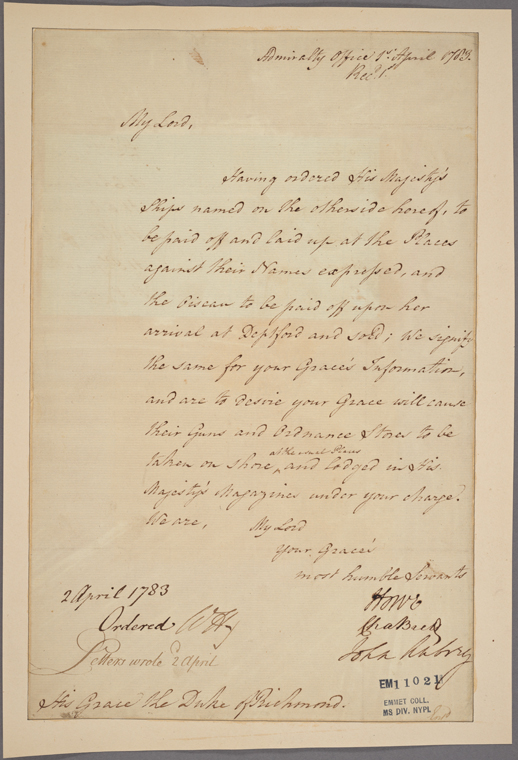 Admiralty Office 1st April 1783.
Rec'd
My Lord,
Having ordered His Majesty's
Ships named on the otherside hereof, to
be paid off and laid up at the Places
against their Names expressed, and
the Oiseau to be paid off upon her
arrival at Deptford and sold; We signify
the same for your Grace's Information,
and are to desire your Grace will cause
their Guns and Ordnance Stores to be
at the usual Places
taken on shore, and lodged in His
Majesty's Magazines under your charge.
We are,
My Lord
Your Grace's
most humble Servants
Howe
Cha Brett
John Aubrey
2 April 1783
Ordered
Letters wrote 2d April
His Grace the Duke of Richmond.
EM11021
EMMET COLL.
MS DIV. NYPL